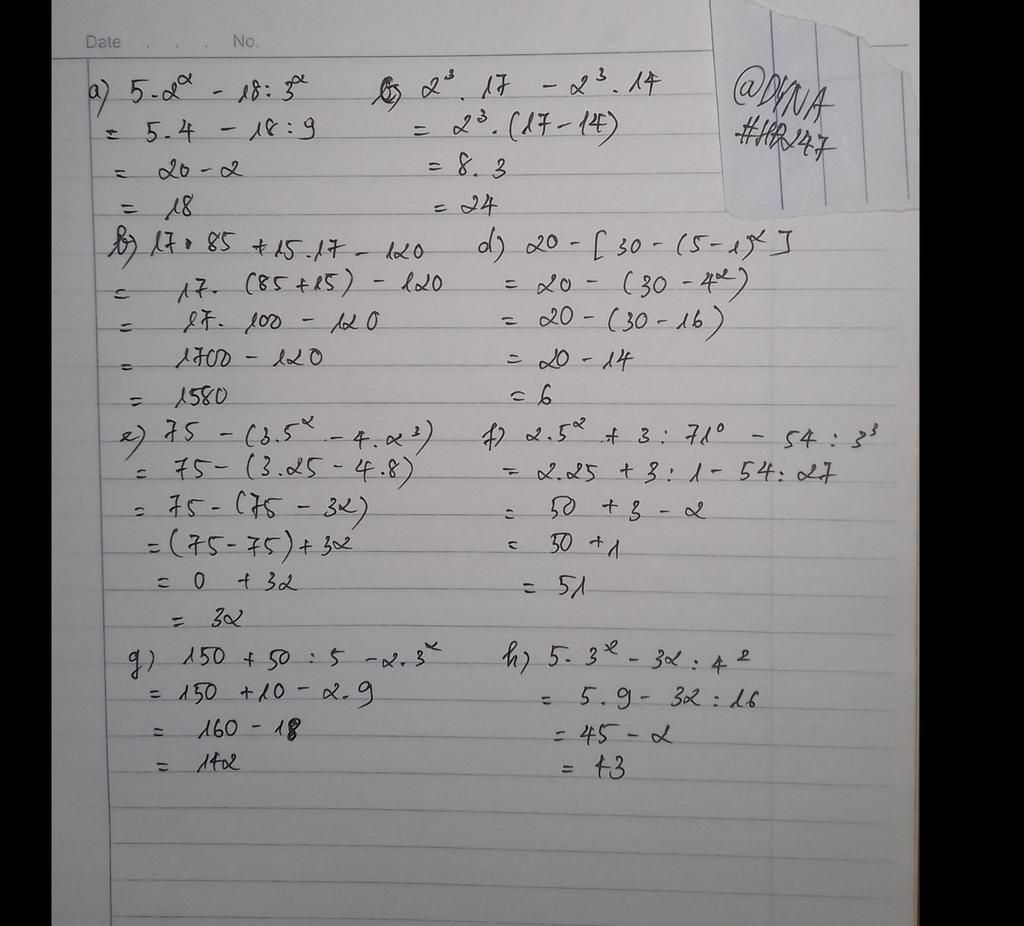 Date . . . No.
@DYNA
#HR247
a) 5.2² - 18:3²
= 5.4 - 18:9
= 20 - 2
= 18
c) 2³.17 - 2³.14
= 2³.(17-14)
= 8.3
= 24
b) 17.85 + 15.17 - 120
= 17.(85+15) - 120
= 17.100 - 120
= 1700 - 120
= 1580
d) 20 - [30 - (5-1)²]
= 20 - (30 - 4²)
= 20 - (30 - 16)
= 20 - 14
= 6
e) 75 - (3.5² - 4.2³)
= 75 - (3.25 - 4.8)
= 75 - (75 - 32)
= (75-75) + 32
= 0 + 32
= 32
f) 2.5² + 3 : 71⁰ - 54 : 3³
= 2.25 + 3 : 1 - 54 : 27
= 50 + 3 - 2
= 50 + 1
= 51
g) 150 + 50 : 5 - 2.3²
= 150 + 10 - 2.9
= 160 - 18
= 142
h) 5.3² - 32 : 4²
= 5.9 - 32 : 16
= 45 - 2
= 43